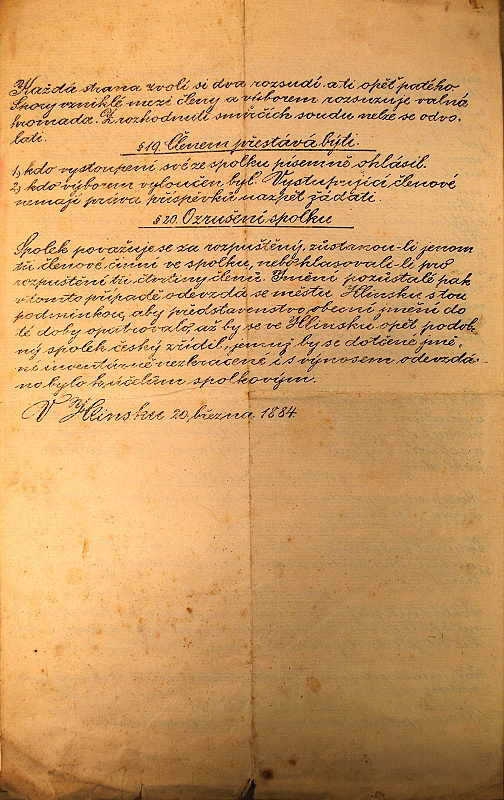 Každá strana zvolí si dva rozsudí a ti opět pátého.
Spory vzniklé mezi členy a výborem rozsuzuje valná
hromada. Z rozhodnutí smírčích soudu nelze se odvo-
lati.
§ 19. Členem přestává býti.
1, kdo vystoupení své ze spolku písemně ohlásil.
2, kdo výborem vyloučen byl. Vystupující členové
nemají práva příspěvků nazpět žádati.
§ 20. O zrušení spolku
Spolek považuje se za rozpuštěný, zůstanou-li jenom
tři členové činní ve spolku, neb hlasovali-li pro
rozpuštění tři čtvrtiny členů. Jmění pozůstalé pak
v tomto případě odevzdá se městu Hlinsku s tou
podmínkou, aby představenstvo obecní jmění do
té doby opatrovalo, až by se v Hlinsku opět podob-
ný spolek český zřídil, jemuž by se dotčené jmě-
ní inventárně nezkráceně i s výnosem odevzdá-
no bylo k účelům spolkovým.
V Hlinsku 20, března 1884